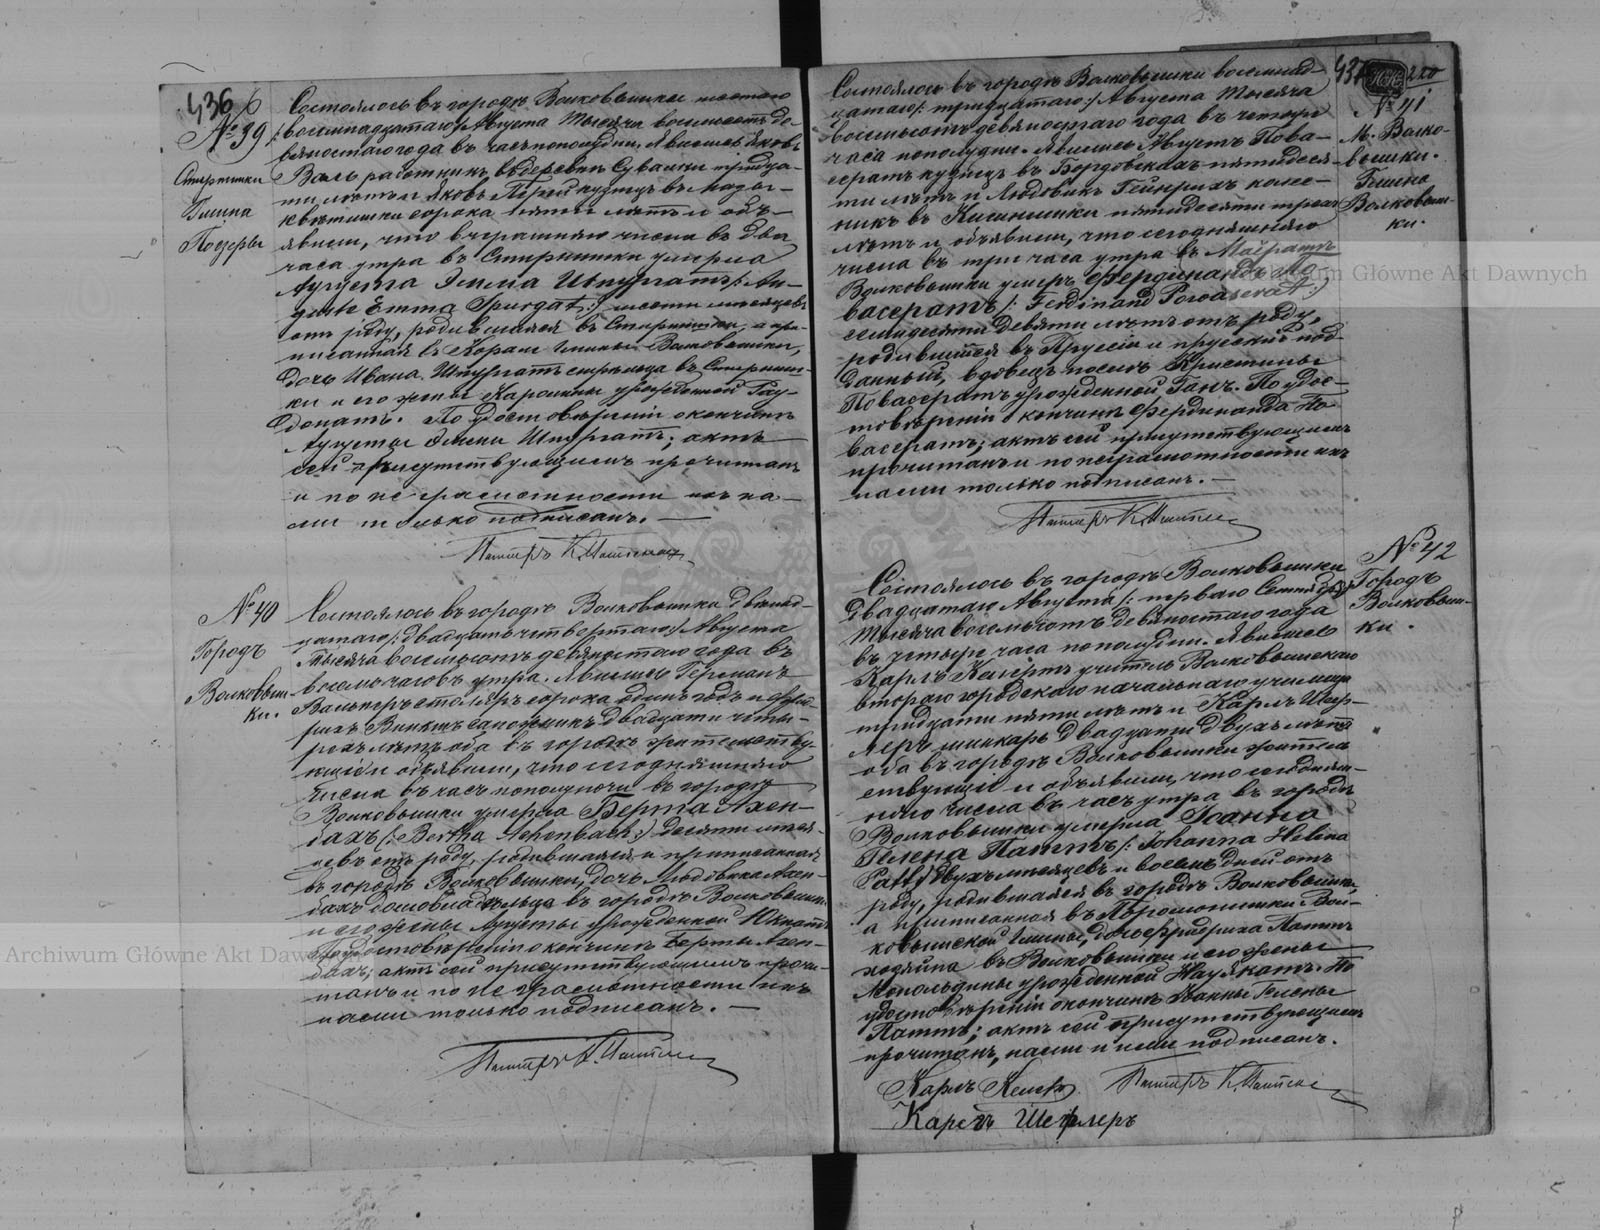 436
№ 39
Стирнишки
Гмина
Подеры
Состоялось въ городѣ Волковышки шестого
/: восемнадцатаго :/ Августа тысяча восемьсотъ де-
вяностаго года въ часъ пополудни. Явились Яковъ
Валь работникъ въ деревни Сувалки тридца-
ти лѣтъ и Яковъ кузнецъ въ
сорока пяти лѣтъ и объ-
явили, что вчерашняго числа въ два
часа утра въ Стирнишки умерла
Августа Эмма Шпургатъ /: Au-
guste Emma Spurgat :/ шести мѣсяцевъ
отъ роду, родившаяся въ Стирнишки, а при-
писанная въ гмины Волковышки,
дочь Ивана Шпургатъ стрѣльца въ Стирниш-
ки и его жены Каролины урожденной Гау-
донатъ. По удостовѣреніи о кончинѣ
Августы Эммы Шпургатъ; актъ
сей присутствующимъ прочитанъ
и по неграмотности ихъ на-
ми только подписанъ. —
Пасторъ К.
№ 40
Городъ
Волковыш-
ки.
Состоялось въ городѣ Волковышки двѣнад-
цатаго /: двадцать четвертаго :/ Августа
тысяча восемьсотъ девяностаго года въ
восемь часовъ утра. Явились Германъ
Вальтеръ столяръ сорока одинъ годъ и Фрид-
рихъ сапожникъ двадцати четы-
рехъ лѣтъ оба въ городѣ жительству-
ющіе и объявили, что сегодняшняго
числа въ часъ пополуночи въ городѣ
Волковышки умерла Берта Ахен-
бахъ /: Bertha Achenbach :/ десяти мѣся-
цевъ отъ роду, родившаяся и приписанная
въ городѣ Волковышки, дочь Людовика Ахен-
бахъ домовладѣльца въ городѣ Волковышки
и его жены Августы урожденной
По удостовѣреніи о кончинѣ Берты Ахен-
бахъ; актъ сей присутствующимъ прочи-
танъ и по неграмотности ихъ
нами только подписанъ. —
Пасторъ К.
437
220
№ 41
М. Волко-
вышки.
Гмина
Волковыш-
ки.
Состоялось въ городѣ Волковышки восемнад-
цатаго /: тридцатаго :/ Августа тысяча
восемьсотъ девяностаго года въ четыре
часа пополудни. Явились Августъ Пова-
сератъ кузнецъ въ пятидеся-
ти лѣтъ и Людовикъ Гейнрихъ колес-
никъ въ пятидесяти трехъ
лѣтъ и объявили, что сегодняшняго
числа въ три часа утра въ Маіоратъ
Волковышки умеръ Фердинандъ По-
васератъ /: Ferdinand Powaserat :/
семидесяти девяти лѣтъ отъ роду,
родившійся въ Пруссіи и прусскій под-
данный, вдовецъ послѣ Кристины
Повасератъ урожденной Ганъ. По удос-
товѣреніи о кончинѣ Фердинанда По-
васератъ; актъ сей присутствующимъ
прочитанъ и по неграмотности ихъ
нами только подписанъ. —
Пасторъ К.
№ 42
Городъ
Волковыш-
ки.
Состоялось въ городѣ Волковышки
двадцатаго Августа /: перваго Сентября :/
тысяча восемьсотъ девяностаго года
въ четыре часа пополудни. Явились
Карлъ учитель Волковышскаго
втораго городскаго начальнаго училища
тридцати пяти лѣтъ и Карлъ Шеф-
леръ шинкарь двадцати двухъ лѣтъ
оба въ городѣ Волковышки житель-
ствующіе и объявили, что сегодняш-
няго числа въ часъ утра въ городѣ
Волковышки умерла Іоанна
Гелена Паттъ /: Johanna Helena
Patt :/ двухъ мѣсяцевъ и восемь дней отъ
роду, родившаяся въ городѣ Волковышки,
а приписанная въ Вол-
ковышской гмины, дочь Фридриха Паттъ
хозяина въ Волковышки и его жены
Леопольдины урожденной По
удостовѣреніи о кончинѣ Іоанны Гелены
Паттъ; актъ сей присутствующимъ
прочитанъ, нами и ими подписанъ.
Карлъ
Пасторъ К.
Карлъ Шефлеръ
Archiwum Główne Akt Dawnych
Archiwum Główne Akt Dawnych